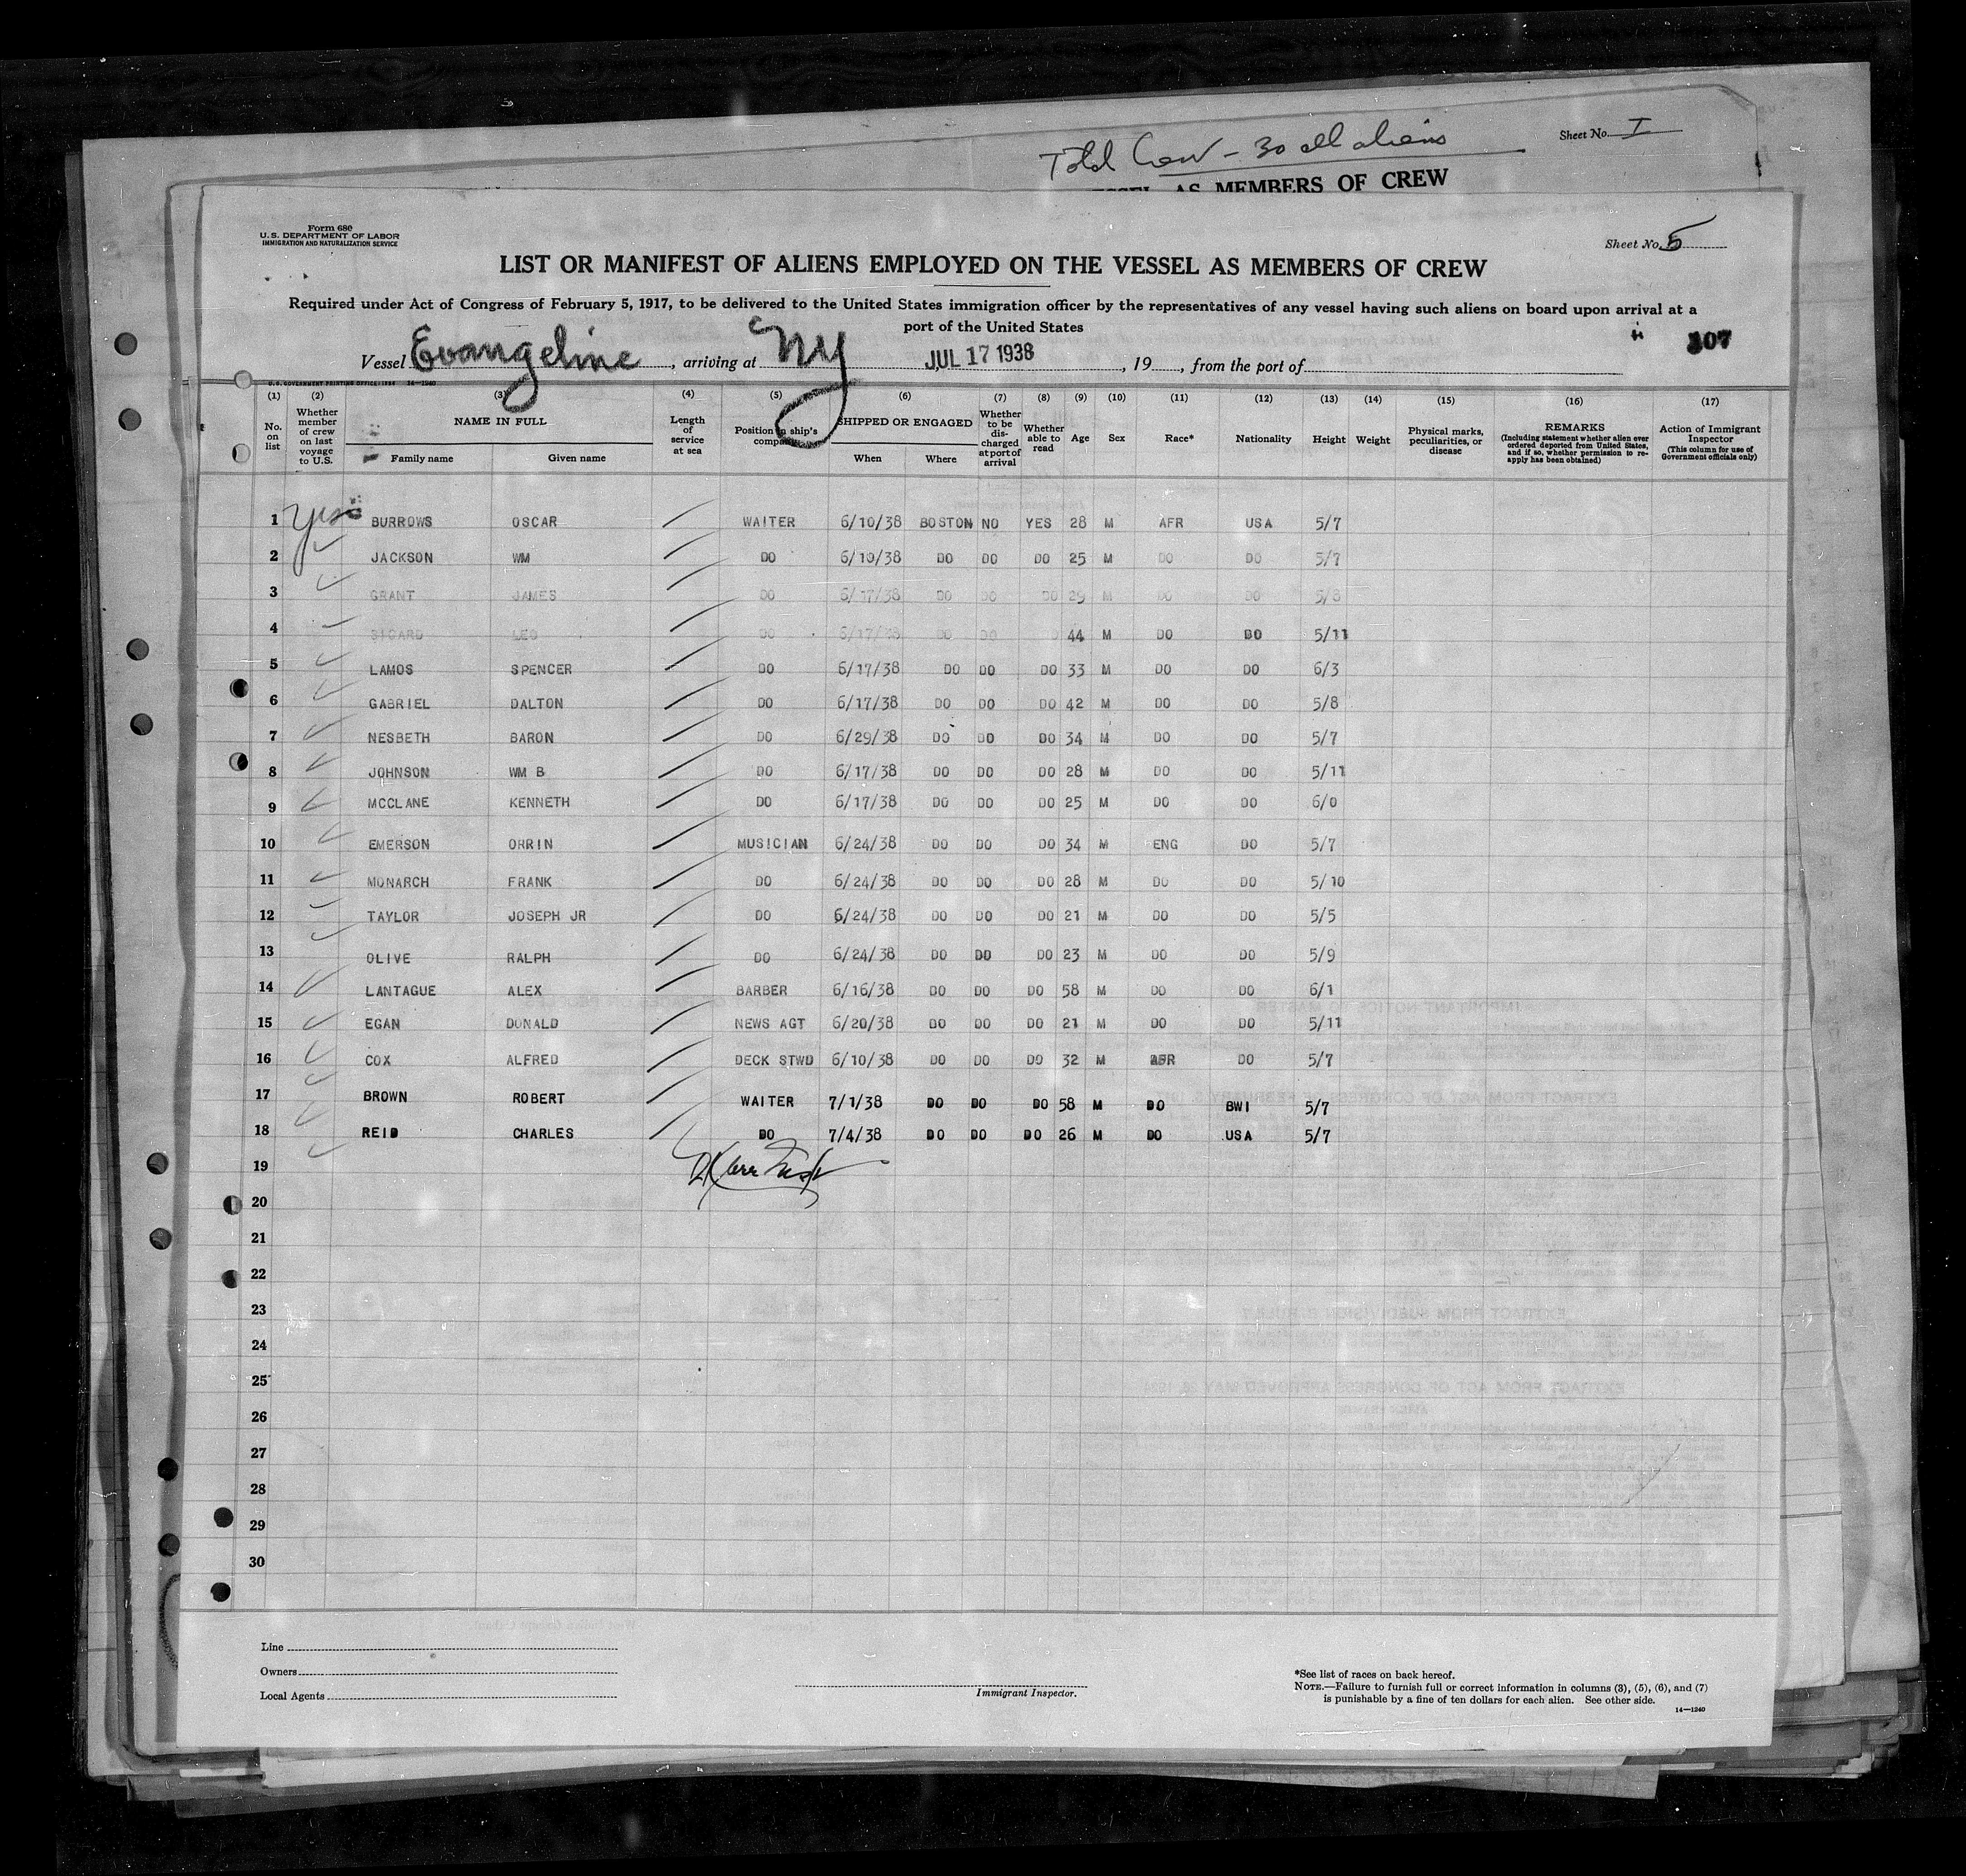 Sheet No. I
Total Crew - 30 all aliens
AS MEMBERS OF CREW
Form 680
U. S. DEPARTMENT OF LABOR
IMMIGRATION AND NATURALIZATION SERVICE
Sheet No. 5
LIST OR MANIFEST OF ALIENS EMPLOYED ON THE VESSEL AS MEMBERS OF CREW
Required under Act of Congress of February 5, 1917, to be delivered to the United States immigration officer by the representatives of any vessel having such aliens on board upon arrival at a
port of the United States
307
Vessel Evangeline, arriving at NY JUL 17 1938, 19, from the port of
U. S. GOVERNMENT PRINTING OFFICE: 1936 14—1240
(1) (2) (3) (4) (5) (6) (7) (8) (9) (10) (11) (12) (13) (14) (15) (16) (17)
No. on list Whether member of crew on last voyage to U.S. NAME IN FULL Family name Given name Length of service at sea Position in ship's company SHIPPED OR ENGAGED When Where Whether to be discharged at port of arrival Whether able to read Age Sex Race* Nationality Height Weight Physical marks, peculiarities, or disease REMARKS (Including statement whether alien ever ordered deported from United States, and if so, whether permission to reapply has been obtained) Action of Immigrant Inspector (This column for use of Government officials only)
1 yes BURROWS OSCAR WAITER 6/10/38 BOSTON NO YES 28 M AFR USA 5/7
2 JACKSON WM DO 6/10/38 DO DO DO 25 M DO DO 5/7
3 GRANT JAMES DO 6/17/38 DO DO DO 29 M DO DO 5/8
4 SICARD LEO DO 6/17/38 DO DO 44 M DO DO 5/11
5 LAMOS SPENCER DO 6/17/38 DO DO DO 33 M DO DO 6/3
6 GABRIEL DALTON DO 6/17/38 DO DO DO 42 M DO DO 5/8
7 NESBETH BARON DO 6/29/38 DO DO DO 34 M DO DO 5/7
8 JOHNSON WM B DO 6/17/38 DO DO DO 28 M DO DO 5/11
9 MCCLANE KENNETH DO 6/17/38 DO DO DO 25 M DO DO 6/0
10 EMERSON ORRIN MUSICIAN 6/24/38 DO DO DO 34 M ENG DO 5/7
11 MONARCH FRANK DO 6/24/38 DO DO DO 28 M DO DO 5/10
12 TAYLOR JOSEPH JR DO 6/24/38 DO DO DO 21 M DO DO 5/5
13 OLIVE RALPH DO 6/24/38 DO DO DO 23 M DO DO 5/9
14 LANTAGUE ALEX BARBER 6/16/38 DO DO DO 58 M DO DO 6/1
15 EGAN DONALD NEWS AGT 6/20/38 DO DO DO 21 M DO DO 5/11
16 COX ALFRED DECK STWD 6/10/38 DO DO DO 32 M AFR DO 5/7
17 BROWN ROBERT WAITER 7/1/38 DO DO DO 58 M DO BWI 5/7
18 REID CHARLES DO 7/4/38 DO DO DO 26 M DO USA 5/7
19
20
21
22
23
24
25
26
27
28
29
30
Line
Owners
Local Agents
Immigrant Inspector.
*See list of races on back hereof.
NOTE.—Failure to furnish full or correct information in columns (3), (5), (6), and (7)
is punishable by a fine of ten dollars for each alien. See other side.
14—1240